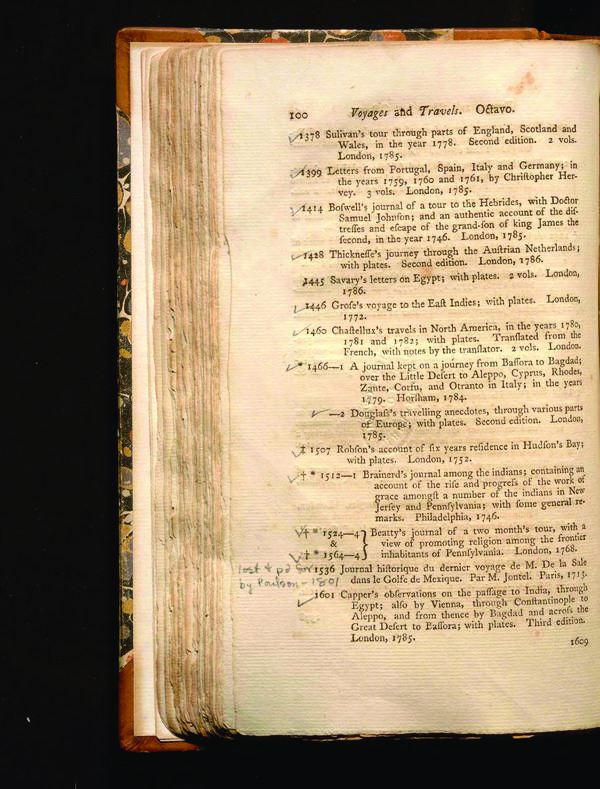 100 Voyages and Travels. Octavo.
1378 Sulivan's tour through parts of England, Scotland and
Wales, in the year 1778. Second edition. 2 vols.
London, 1785.
1399 Letters from Portugal, Spain, Italy and Germany; in
the years 1759, 1760 and 1761, by Chriſtopher Her-
vey. 3 vols. London, 1785.
1414 Boſwell's journal of a tour to the Hebrides, with Doctor
Samuel Johnſon; and an authentic account of the diſ-
treſſes and eſcape of the grand-ſon of king James the
ſecond, in the year 1746. London, 1785.
1428 Thickneſſe's journey through the Auſtrian Netherlands;
with plates. Second edition. London, 1786.
1445 Savary's letters on Egypt; with plates. 2 vols. London,
1786.
1446 Groſe's voyage to the Eaſt Indies; with plates. London,
1772.
1460 Chaſtellux's travels in North America, in the years 1780,
1781 and 1782; with plates. Tranſlated from the
French, with notes by the tranſlator. 2 vols. London.
* 1466—1 A journal kept on a journey from Baſſora to Bagdad;
over the Little Deſert to Aleppo, Cyprus, Rhodes,
Zante, Corfu, and Otranto in Italy; in the years
1779. Horſham, 1784.
—2 Douglaſs's travelling anecdotes, through various parts
of Europe; with plates. Second edition. London,
1785.
‡ 1507 Robſon's account of ſix years reſidence in Hudſon's Bay;
with plates. London, 1752.
† * 1512—1 Brainerd's journal among the indians; containing an
account of the riſe and progreſs of the work of
grace amongſt a number of the indians in New
Jerſey and Pennſylvania; with ſome general re-
marks. Philadelphia, 1746.
† * 1524—4 } Beatty's journal of a two month's tour, with a
& view of promoting religion among the frontier
† * 1564—4 inhabitants of Pennſylvania. London, 1768.
lost & pd for 1536 Journal hiſtorique du dernier voyage de M. De la Sale
by Poulson - 1801 dans le Golfe de Mexique. Par M. Jontel. Paris, 1713.
1601 Capper's obſervations on the paſſage to India, through
Egypt; alſo by Vienna, through Conſtantinople to
Aleppo, and from thence by Bagdad and acroſs the
Great Deſert to Baſſora; with plates. Third edition.
London, 1785.
1609